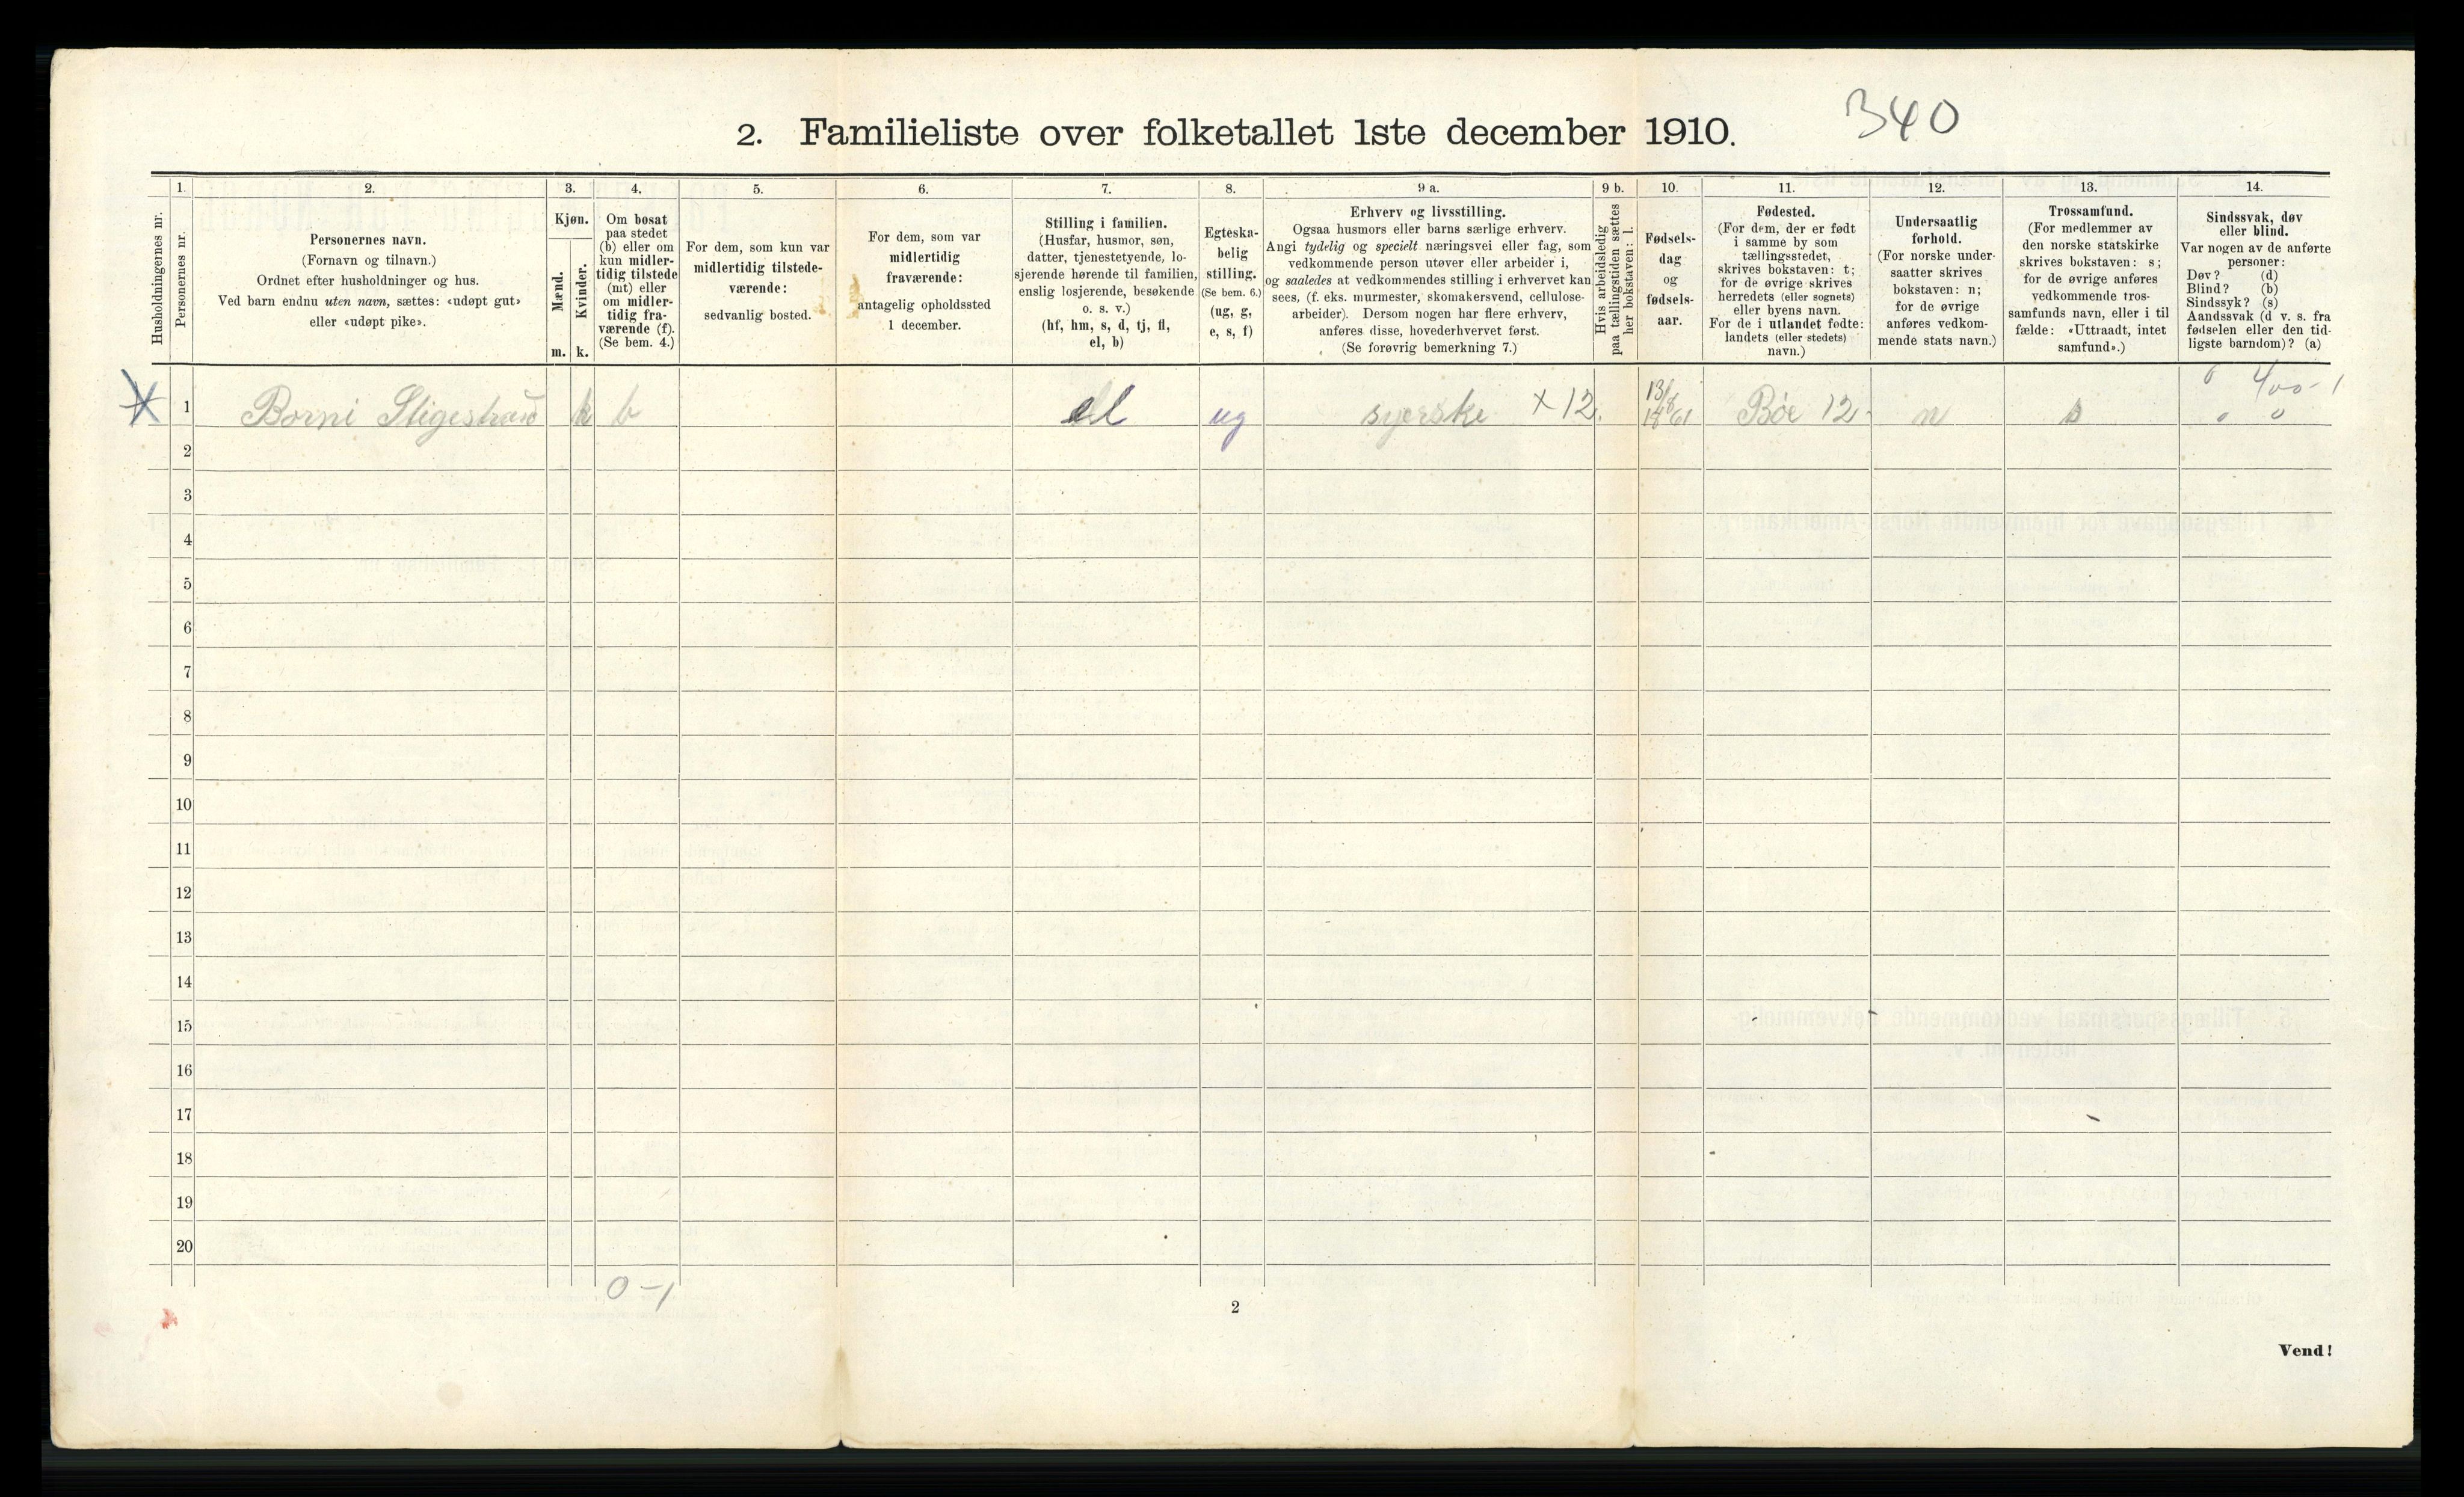 340
2. Familieliste over folketallet 1ste december 1910.
1.
2.
3.
4.
5.
6.
7.
8.
9 a.
9 b.
10.
11.
12.
13.
14.
Husholdningernes nr.
Personernes nr.
Personernes navn.
(Fornavn og tilnavn.)
Ordnet efter husholdninger og hus.
Ved barn endnu uten navn, sættes: «udøpt gut»
eller «udøpt pike».
Kjøn.
Mænd.
Kvinder.
m.
k.
Om bosat
paa stedet
(b) eller om
kun midler-
tidig tilstede
(mt) eller
om midler-
tidig fra-
værende (f).
(Se bem. 4.)
For dem, som kun var
midlertidig tilstede-
værende:
sedvanlig bosted.
For dem, som var
midlertidig
fraværende:
antagelig opholdssted
1 december.
Stilling i familien.
(Husfar, husmor, søn,
datter, tjenestetyende, lo-
sjerende hørende til familien,
enslig losjerende, besøkende
o. s. v.)
(hf, hm, s, d, tj, fl,
el, b)
Egteska-
belig
stilling.
(Se bem. 6.)
(ug, g,
e, s, f)
Erhverv og livsstilling.
Ogsaa husmors eller barns særlige erhverv.
Angi tydelig og specielt næringsvei eller fag, som
vedkommende person utøver eller arbeider i,
og saaledes at vedkommendes stilling i erhvervet kan
sees, (f. eks. murmester, skomakersvend, cellulose-
arbeider). Dersom nogen har flere erhverv,
anføres disse, hovederhvervet først.
(Se forøvrig bemerkning 7.)
Hvis arbeidsledig
paa tællingstiden sættes
her bokstaven: l.
Fødsels-
dag
og
fødsels-
aar.
Fødested.
(For dem, der er født
i samme by som
tællingsstedet,
skrives bokstaven: t;
for de øvrige skrives
herredets (eller sognets)
eller byens navn.
For de i utlandet fødte:
landets (eller stedets)
navn.)
Undersaatlig
forhold.
(For norske under-
saatter skrives
bokstaven: n;
for de øvrige
anføres vedkom-
mende stats navn.)
Trossamfund.
(For medlemmer av
den norske statskirke
skrives bokstaven: s;
for de øvrige anføres
vedkommende tros-
samfunds navn, eller i til
fælde: «Uttraadt, intet
samfund».)
Sindssvak, døv
eller blind.
Var nogen av de anførte
personer:
Døv? (d)
Blind? (b)
Sindssyk? (s)
Aandssvak (d v. s. fra
fødselen eller den tid-
ligste barndom)? (a)
400-1
1 k b el ug syerske x12. 13/8 61 Bøe 12 n s
2
3
4
5
6
7
8
9
10
11
12
13
14
15
16
17
18
19
20
0-1
2
Vend!